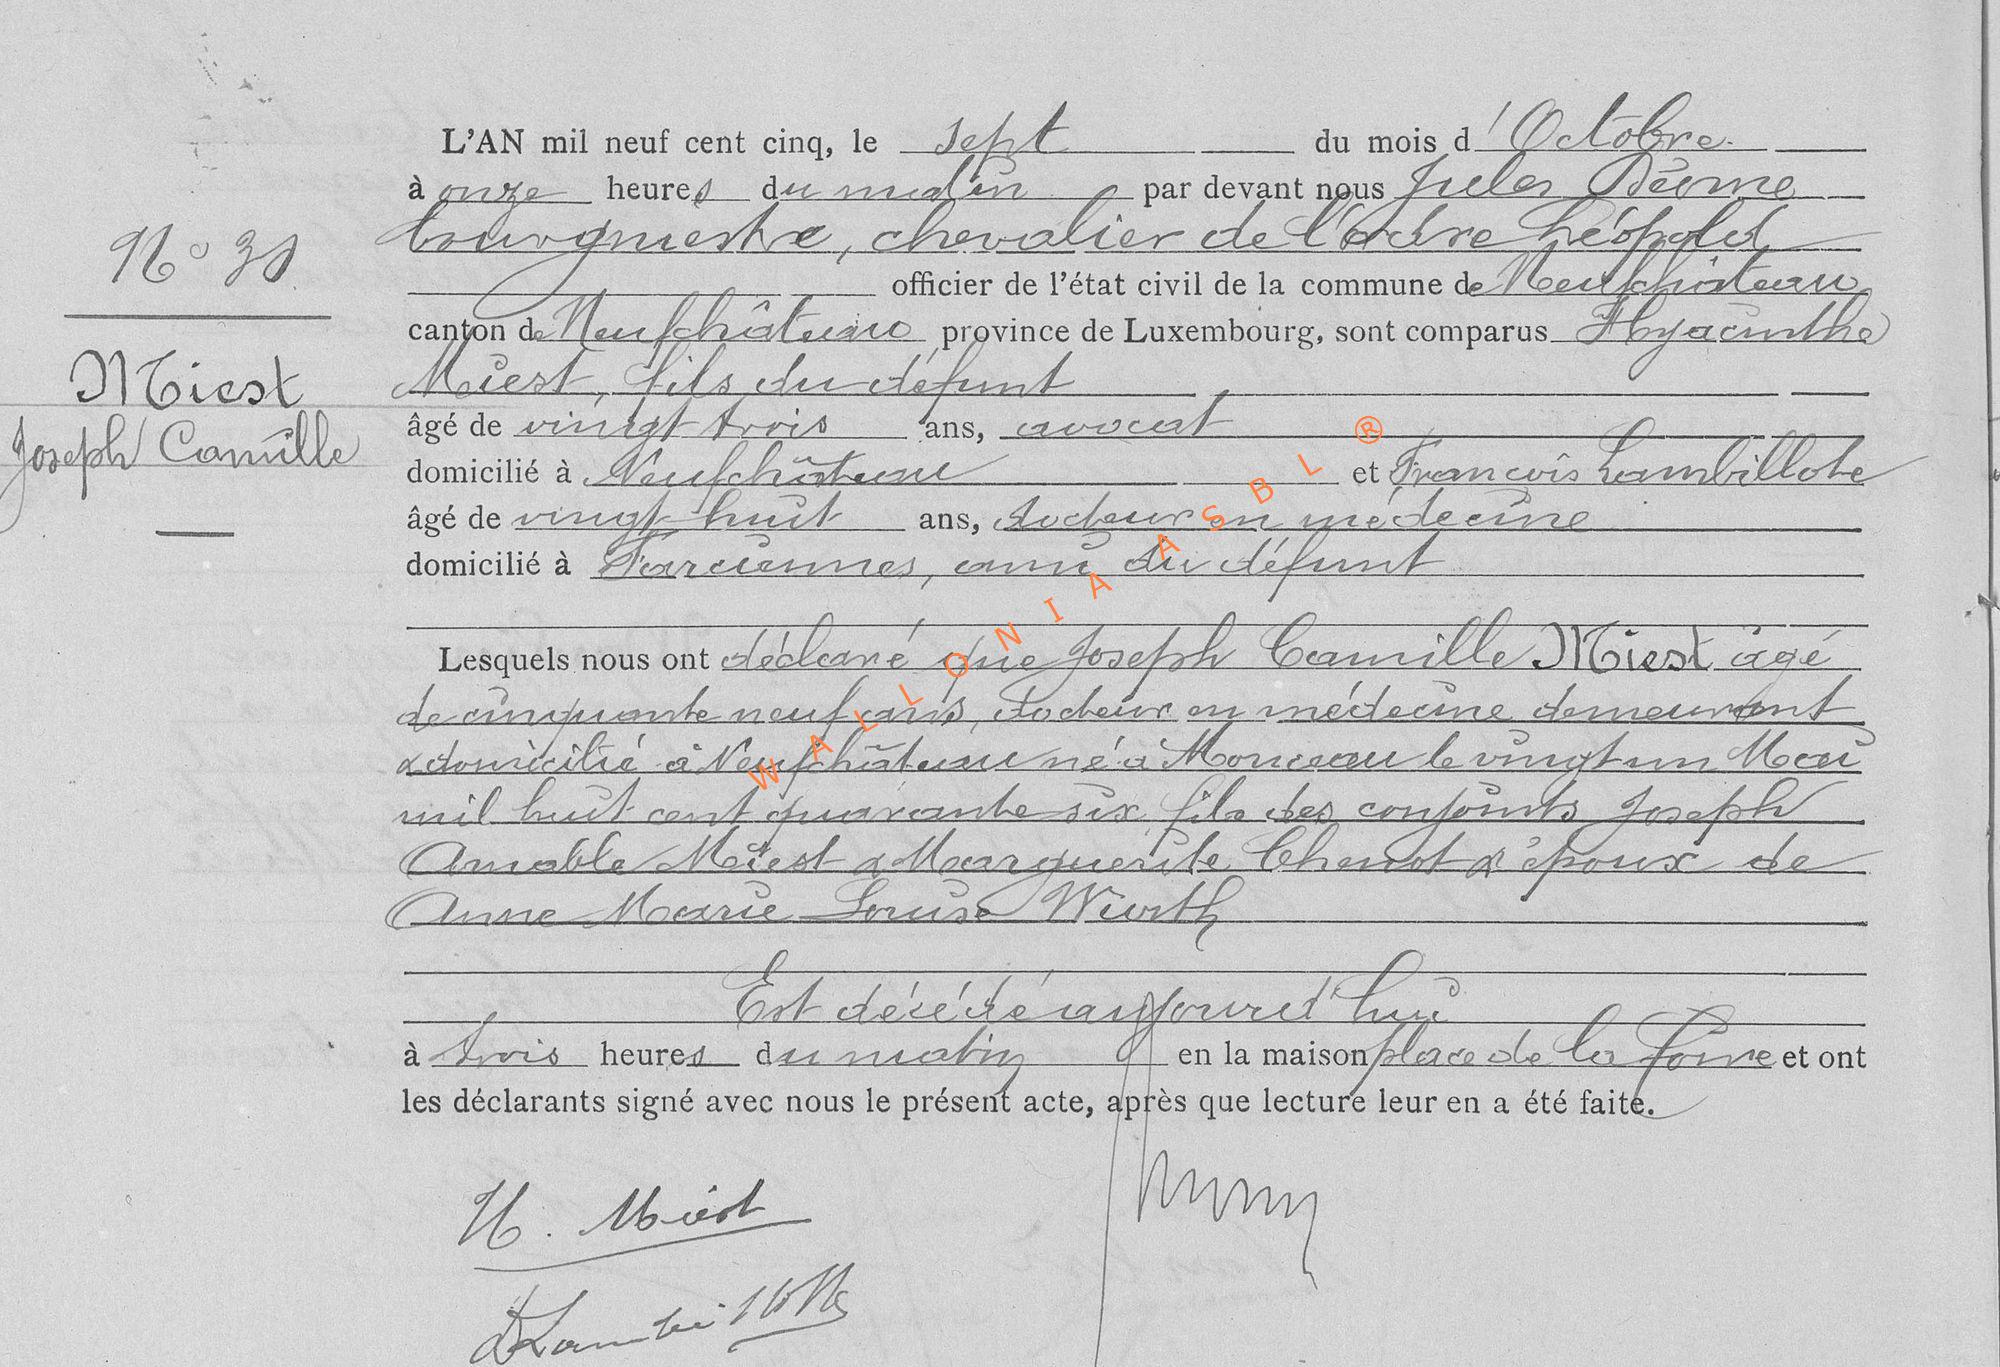 L'AN mil neuf cent cinq, le sept du mois d'Octobre
à onze heures du matin par devant nous Jules
bourgmestre, chevalier de l'ordre Léopold
officier de l'état civil de la commune de Neufchâteau
N° 31
canton de Neufchâteau province de Luxembourg, sont comparus Hyacinthe
Miest, fils du défunt
Miest
Joseph Camille
âgé de vingt trois ans, avocat
domicilié à Neufchâteau et François Lambillote
âgé de vingt-huit ans, docteur en médecine
domicilié à Farciennes, ami du défunt
Lesquels nous ont déclaré que Joseph Camille Miest âgé
de cinquante neuf ans, docteur en médecine demeurant
& domicilié à Neufchâteau né à Monceau le vingt un Mai
mil huit cent quarante six fils des conjoints Joseph
Amable Miest & Marguerite Chenot & époux de
Anne Marie Louise Wurth
Est décédé aujourd'hui
à trois heures du matin en la maison place de la Foire et ont
les déclarants signé avec nous le présent acte, après que lecture leur en a été faite.
H. Miest
WALLONIA ASBL ®